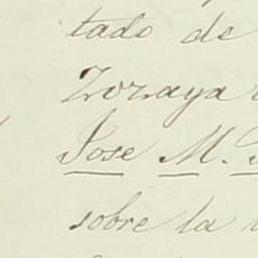 tado de
Zozaya
Jose M.
sobre la